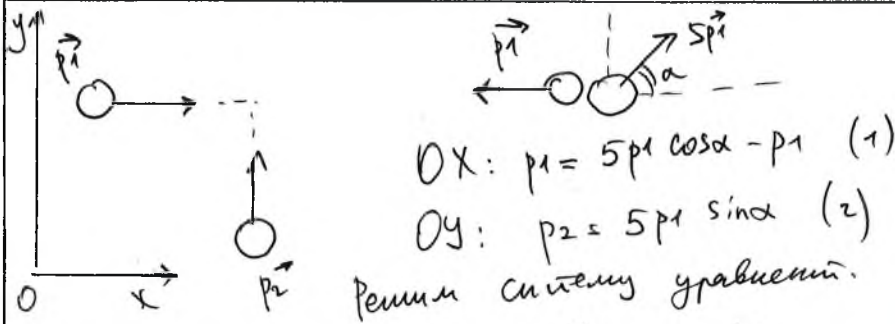 y
p⃗1
p⃗1
5p⃗1
α
OX: p1 = 5p1 cosα - p1 (1)
OY: p2 = 5p1 sinα (2)
O
x
p⃗2
Решим систему уравнений.